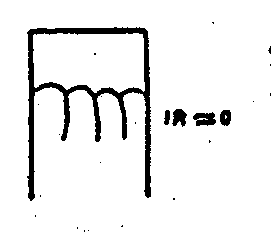 IR ≃ 0